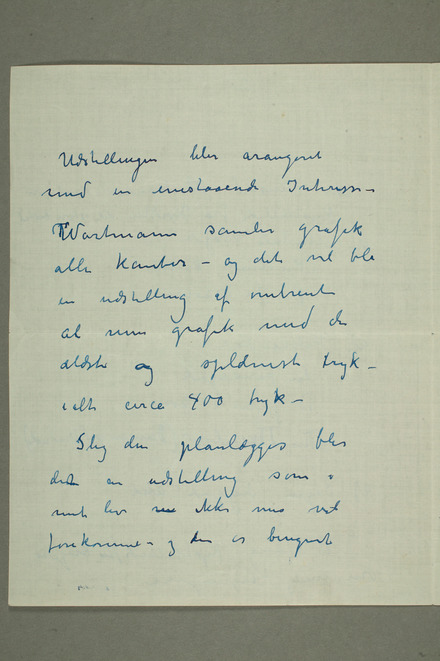 Udstillingen blir arangeret
med en enestaaende Interesse –
Wartmann samler grafik
alle kanter – og det vil bli
en udstilling af omtrent
al min grafik med de
ældste og sjeldneste tryk –
i alt circa 400 tryk –
Slig den planlægges blir
det en udstilling som i
mit liv ikke mere vil
forekomme – og den er beregnet